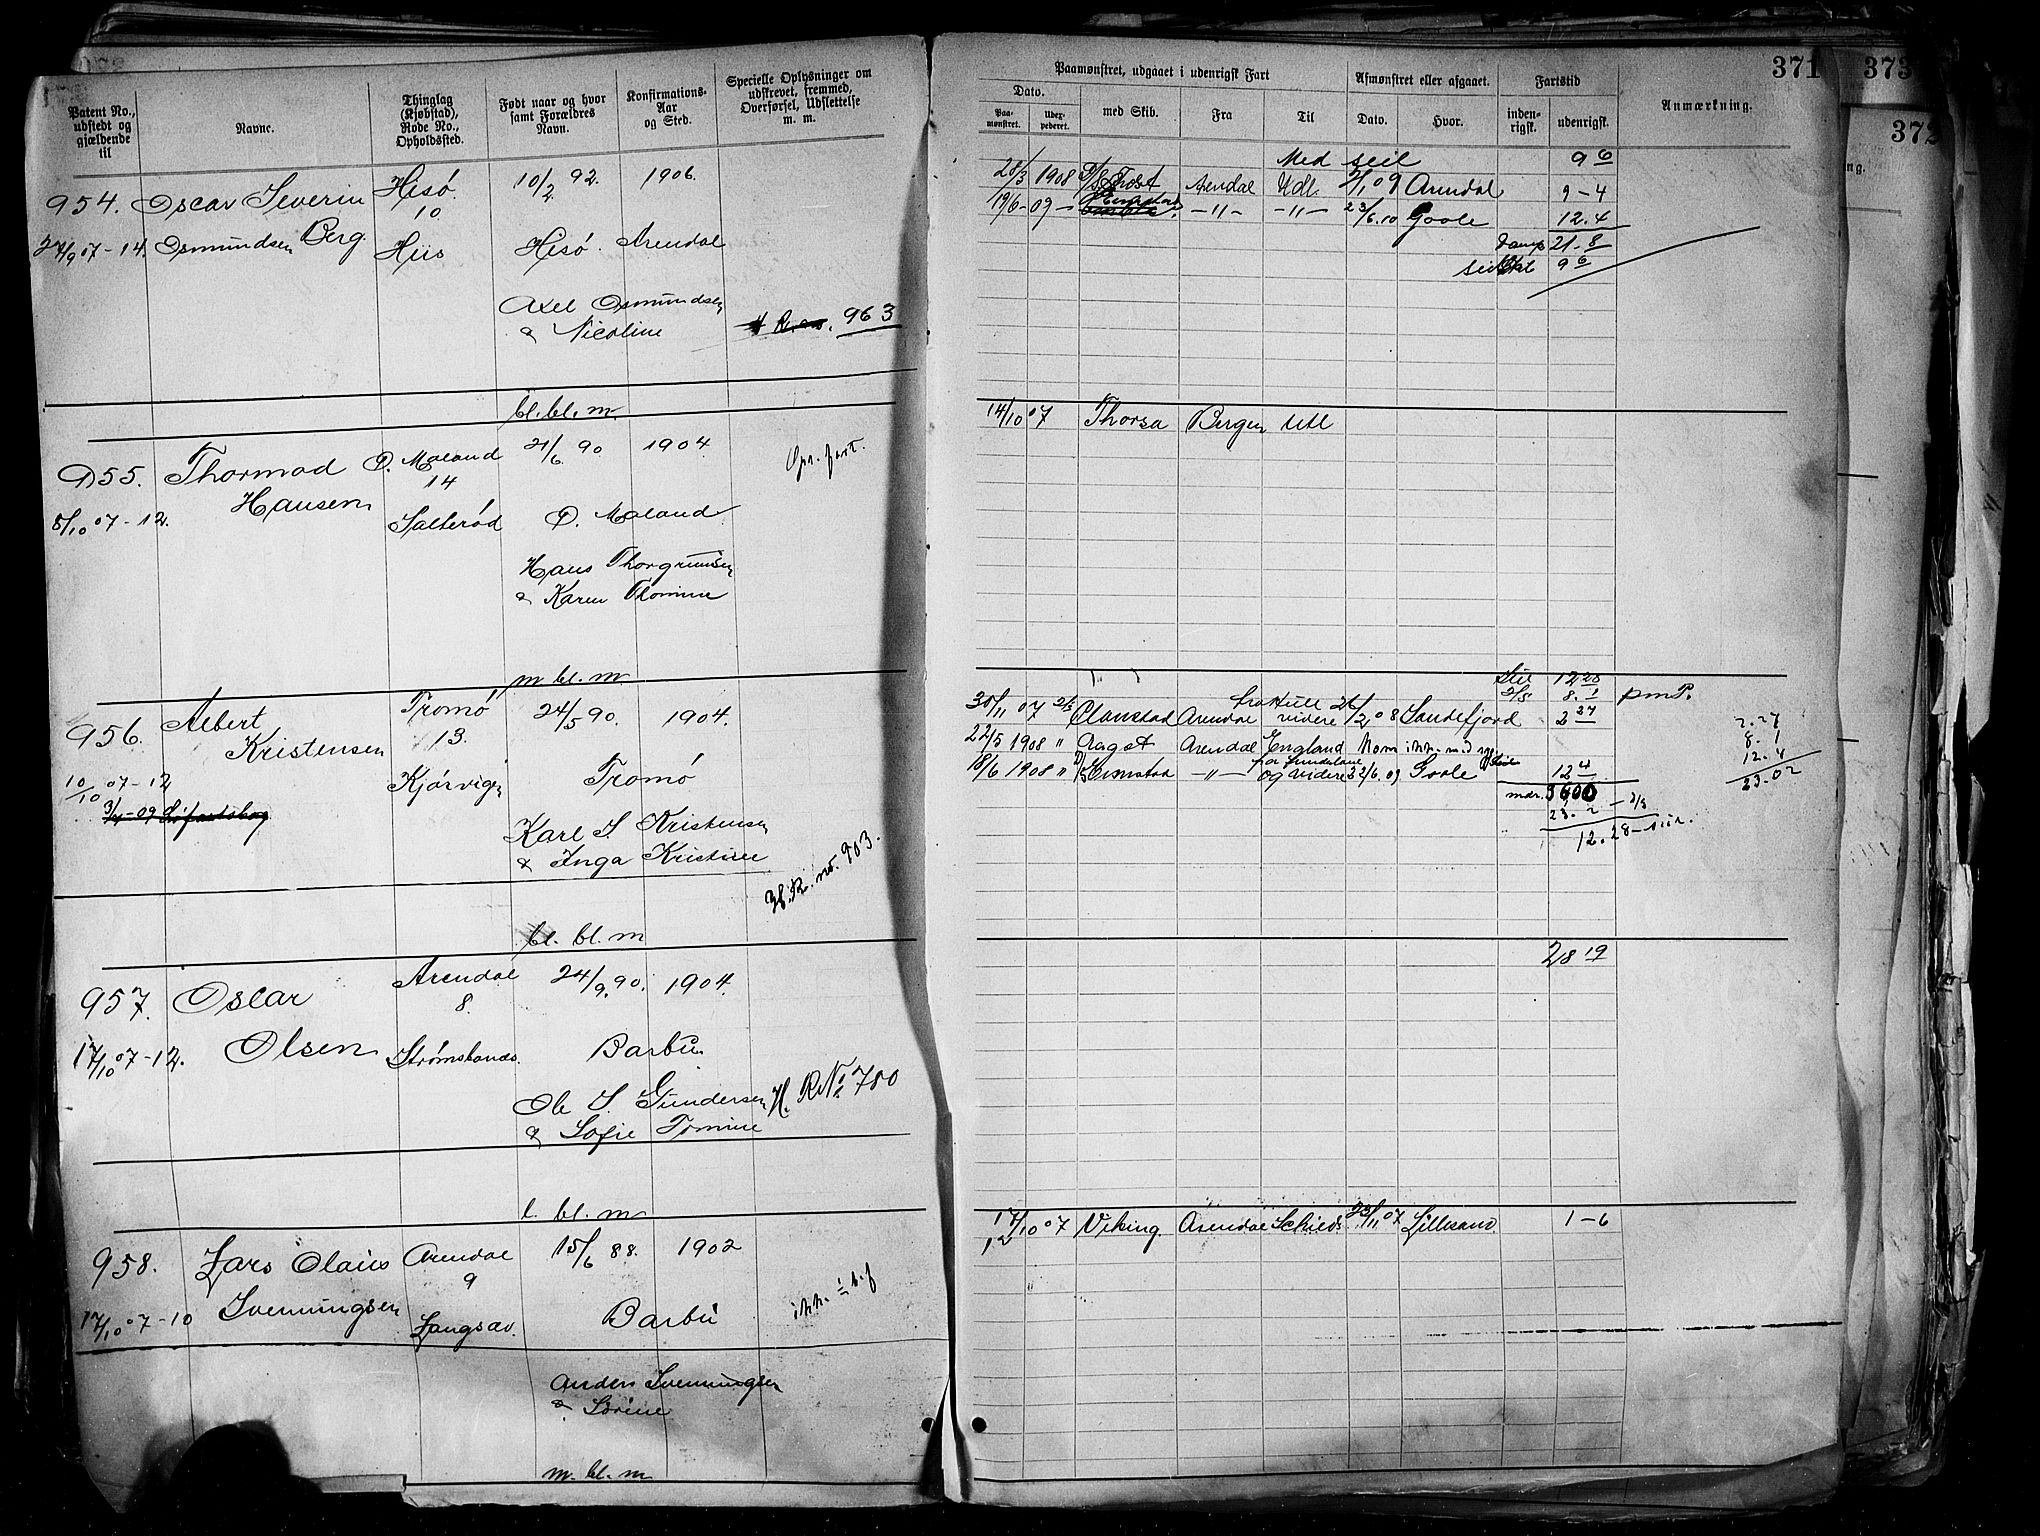 Patent No., udstedt og gjældende til
Navne.
Thinglag (Kjøbstad), Rode No., Opholdssted.
Født naar og hvor samt Forældres Navn.
Konfirmations-Aar og Sted.
Specielle Oplysninger om udskrevet, fremmed, Overførsel, Udslettelse m. m.
954. Oscar Severin
Hisö.
10/2 92.
1906.
10
27/9 07-14. Osmundsen Berg.
Hiis
Hisö.
Arendal
Axel Osmundsen
& Nicoline
963
bl. bl. m
955. Thormod
Ø. Moland
21/6 90
1904
14
Hansen
5/10 07-12.
Salterød
Ø. Moland
Hans Thorgrimsen
& Karen Thomine
m bl. m
956. Albert
Tromö
24/5 90.
1904.
Kristensen
13.
10/10 07-12
Kjörvigen
Tromö
3/4-09
Karl S. Kristensen
& Inga Kristine
H.R. no. 903.
bl. bl. m
957. Oscar
Arendal
24/9. 90.
1904.
8.
Olsen
17/10 07-12.
Strømsbunds.
Barbu
Ole S. Gundersen
& Sofie Tomine
H. R No 780
l. bl. m
958. Lars Olaus
Arendal
15/6 88.
1902
9
Svenningsen
17/10 07-10
Langsæv.
Barbu
Anders Svenningsen
& Sörine
m. bl. m
371
373
372
Paamønstret, udgaaet i udenrigsk Fart
Afmønstret eller afgaaet.
Fartstid
Anmærkning.
Dato.
Paamønstret.
Udexpederet.
med Skib.
Fra
Til
Dato.
Hvor.
indenrigsk.
udenrigsk.
Med seil
9 6
28/3 1908 D/S Trost Arendal Udl. 2/1 09 Arendal 9-4
19/6-09- -"- -"- 23/6.10 Goole 12.4
damp 21-8
seil 9 6
14/10 07 Thorsa Bergen Utl
12 28
D/S 8.1 pm P.
30/11 07 Clonstad Arendal fra Hull videre 26/2.08 Sandefjord 2 27
22/5 1908 " August Arendal England
18/6 1908 " D/S Ernstad -"- og videre 22/6.09 Goole 12 4
mdr. 3600
23.2 - D/S
12.28
2.27
8.1
12.4
23.02
28 19
17/10 07 Viking. Arendal Schied. 23/11 07 Lillesand. 1-6